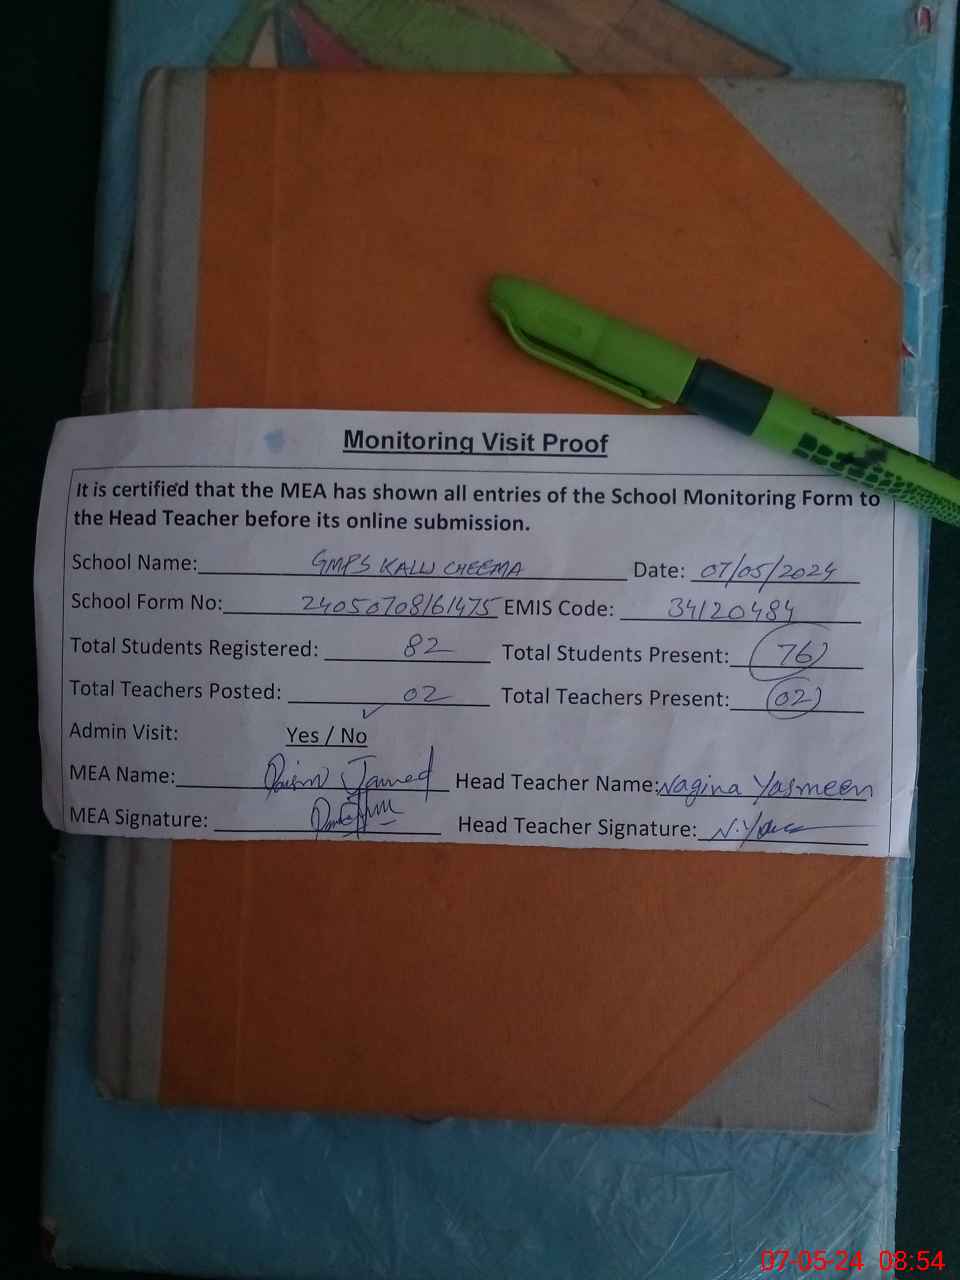 Monitoring Visit Proof
It is certified that the MEA has shown all entries of the School Monitoring Form to
the Head Teacher before its online submission.
School Name: GMPS KALU CHEEMA Date: 07/05/2024
School Form No: 24050708161475 EMIS Code: 34120484
Total Students Registered: 82 Total Students Present: 76
Total Teachers Posted: 02 Total Teachers Present: 02
Admin Visit: Yes / No
MEA Name: Jamed Head Teacher Name: Nagina Yasmeen
MEA Signature: Head Teacher Signature: N.Yas
07-05-24 08:54